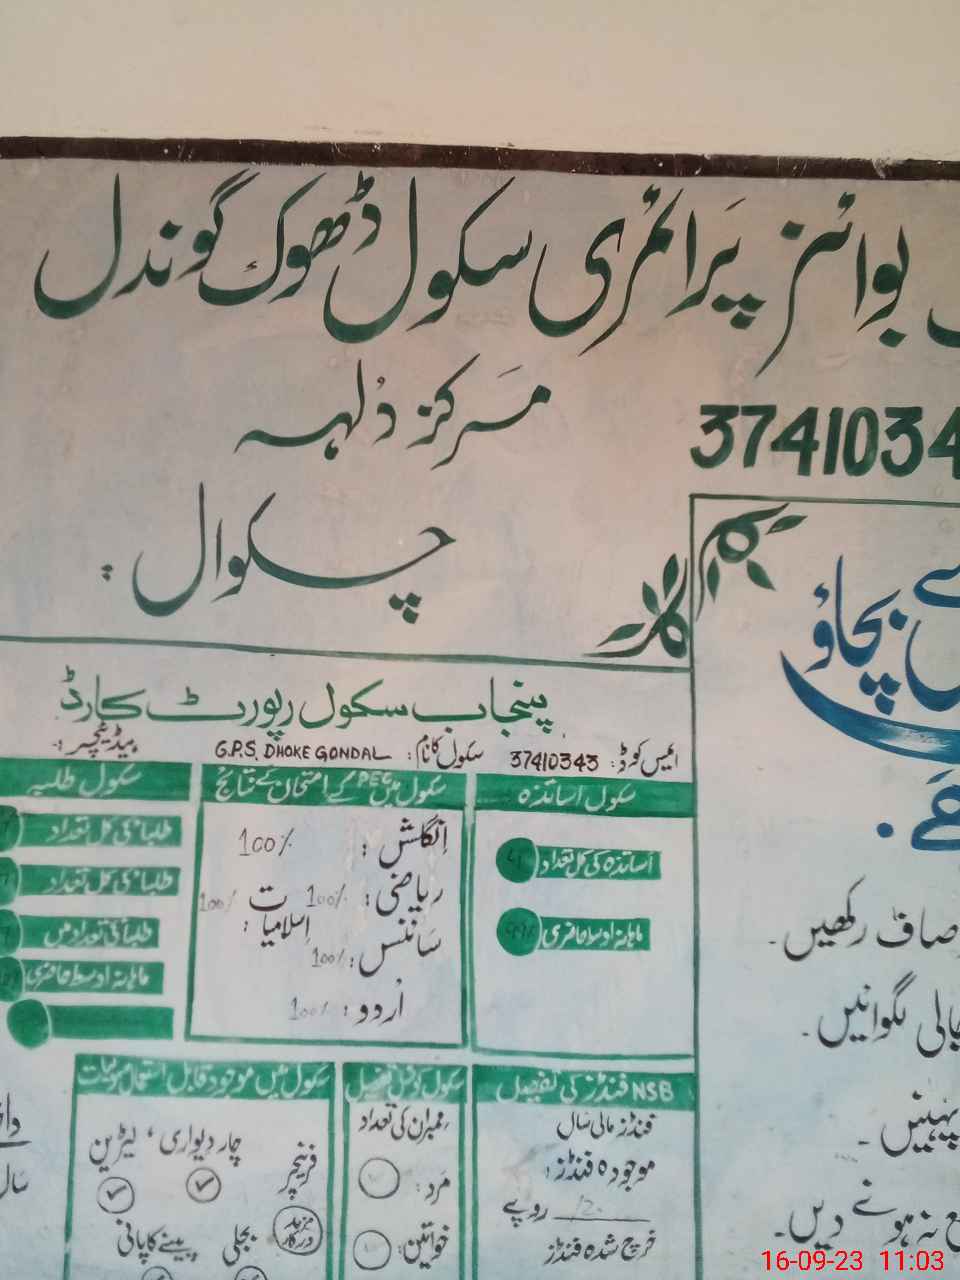 بوائز پرائمری سکول ڈھوک گوندل
مرکز دُلہہ
3741034
چکوال
بچاؤ
پنجاب سکول رپورٹ کارڈ
ایمس کوڈ: 37410343 سکول کا نام: G.P.S. DHOKE GONDAL ہیڈ ٹیچر:
سکول اساتذہ
اساتذہ کی کل تعداد
ماہانہ اوسط حاضری
سکول میں PEC کے امتحان کے نتائج
انگلش: 100%
ریاضی: 100%
اسلامیات: 100%
سائنس: 100%
اُردو: 100%
سکول طلبہ
طلبا کی کل تعداد
طلبا کی کل تعداد
ماہانہ اوسط حاضری
NSB فنڈز کی تفصیل
فنڈز مالی سال
موجودہ فنڈز:
روپے
خرچ شدہ فنڈز
سکول کونسل
ممبران کی تعداد
مرد:
خواتین:
سکول میں موجود قابل استعمال سہولیات
فرنیچر چار دیواری، لیٹرین
مزید درکار
بجلی پینے کا پانی
صاف رکھیں۔
جالی لگوائیں۔
پہنیں۔
نہ ہونے دیں۔
16-09-23 11:03